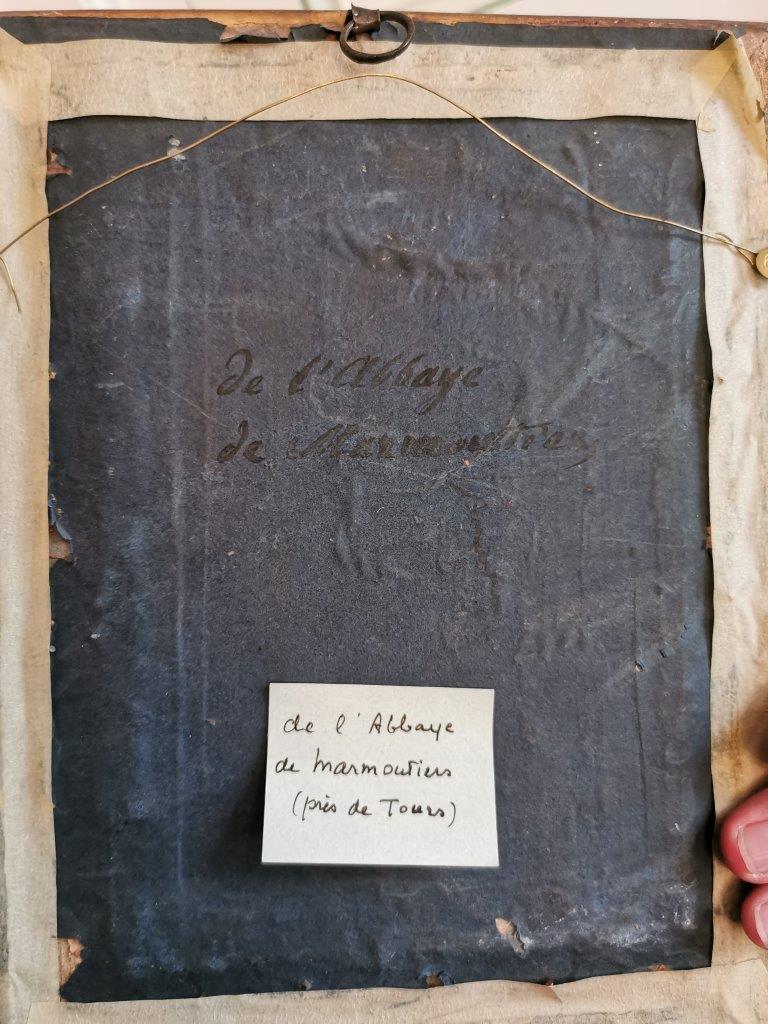 de l'Abbaye
de Marmoutiers
de l'Abbaye
de Marmoutiers
(près de Tours)